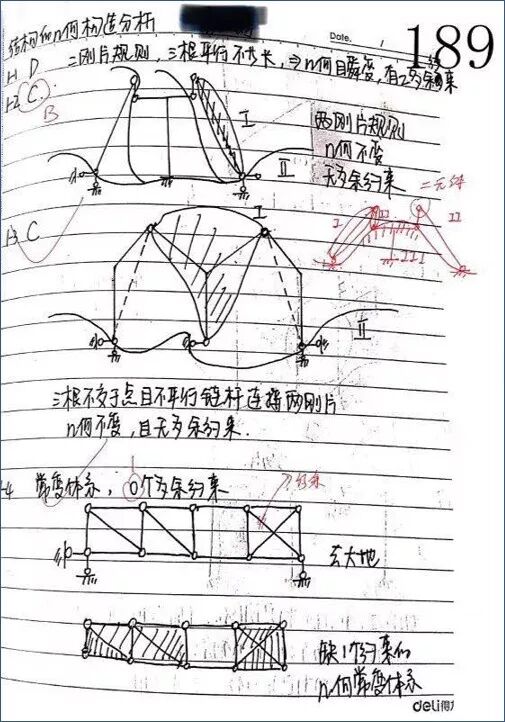 结构的几何构造分析
Date.
189
1-1 D 二刚片规则，三根平行不等长，⇒几何瞬变，有1个多余约束
1-2 C
B
I
II
两刚片规则
几何不变
无多余约束
二元体
1-3 C
I
II
I
II
III
三根不交于一点且不平行链杆连接两刚片
几何不变，且无多余约束.
1-4 常变体系，0个多余约束
1
约束
去大地
缺1个约束的
几何常变体系
deli得力